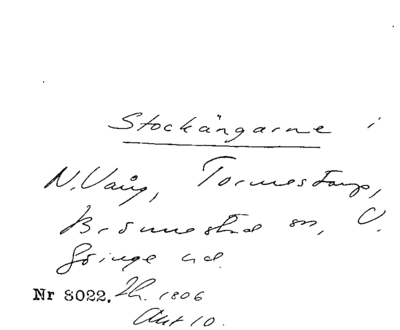 Stockängarne i
N. Vång, Tormestorp,
Brönnestad sn, V.
Göinge hd.
Nr 8022. Lh. 1806
Akt 10.